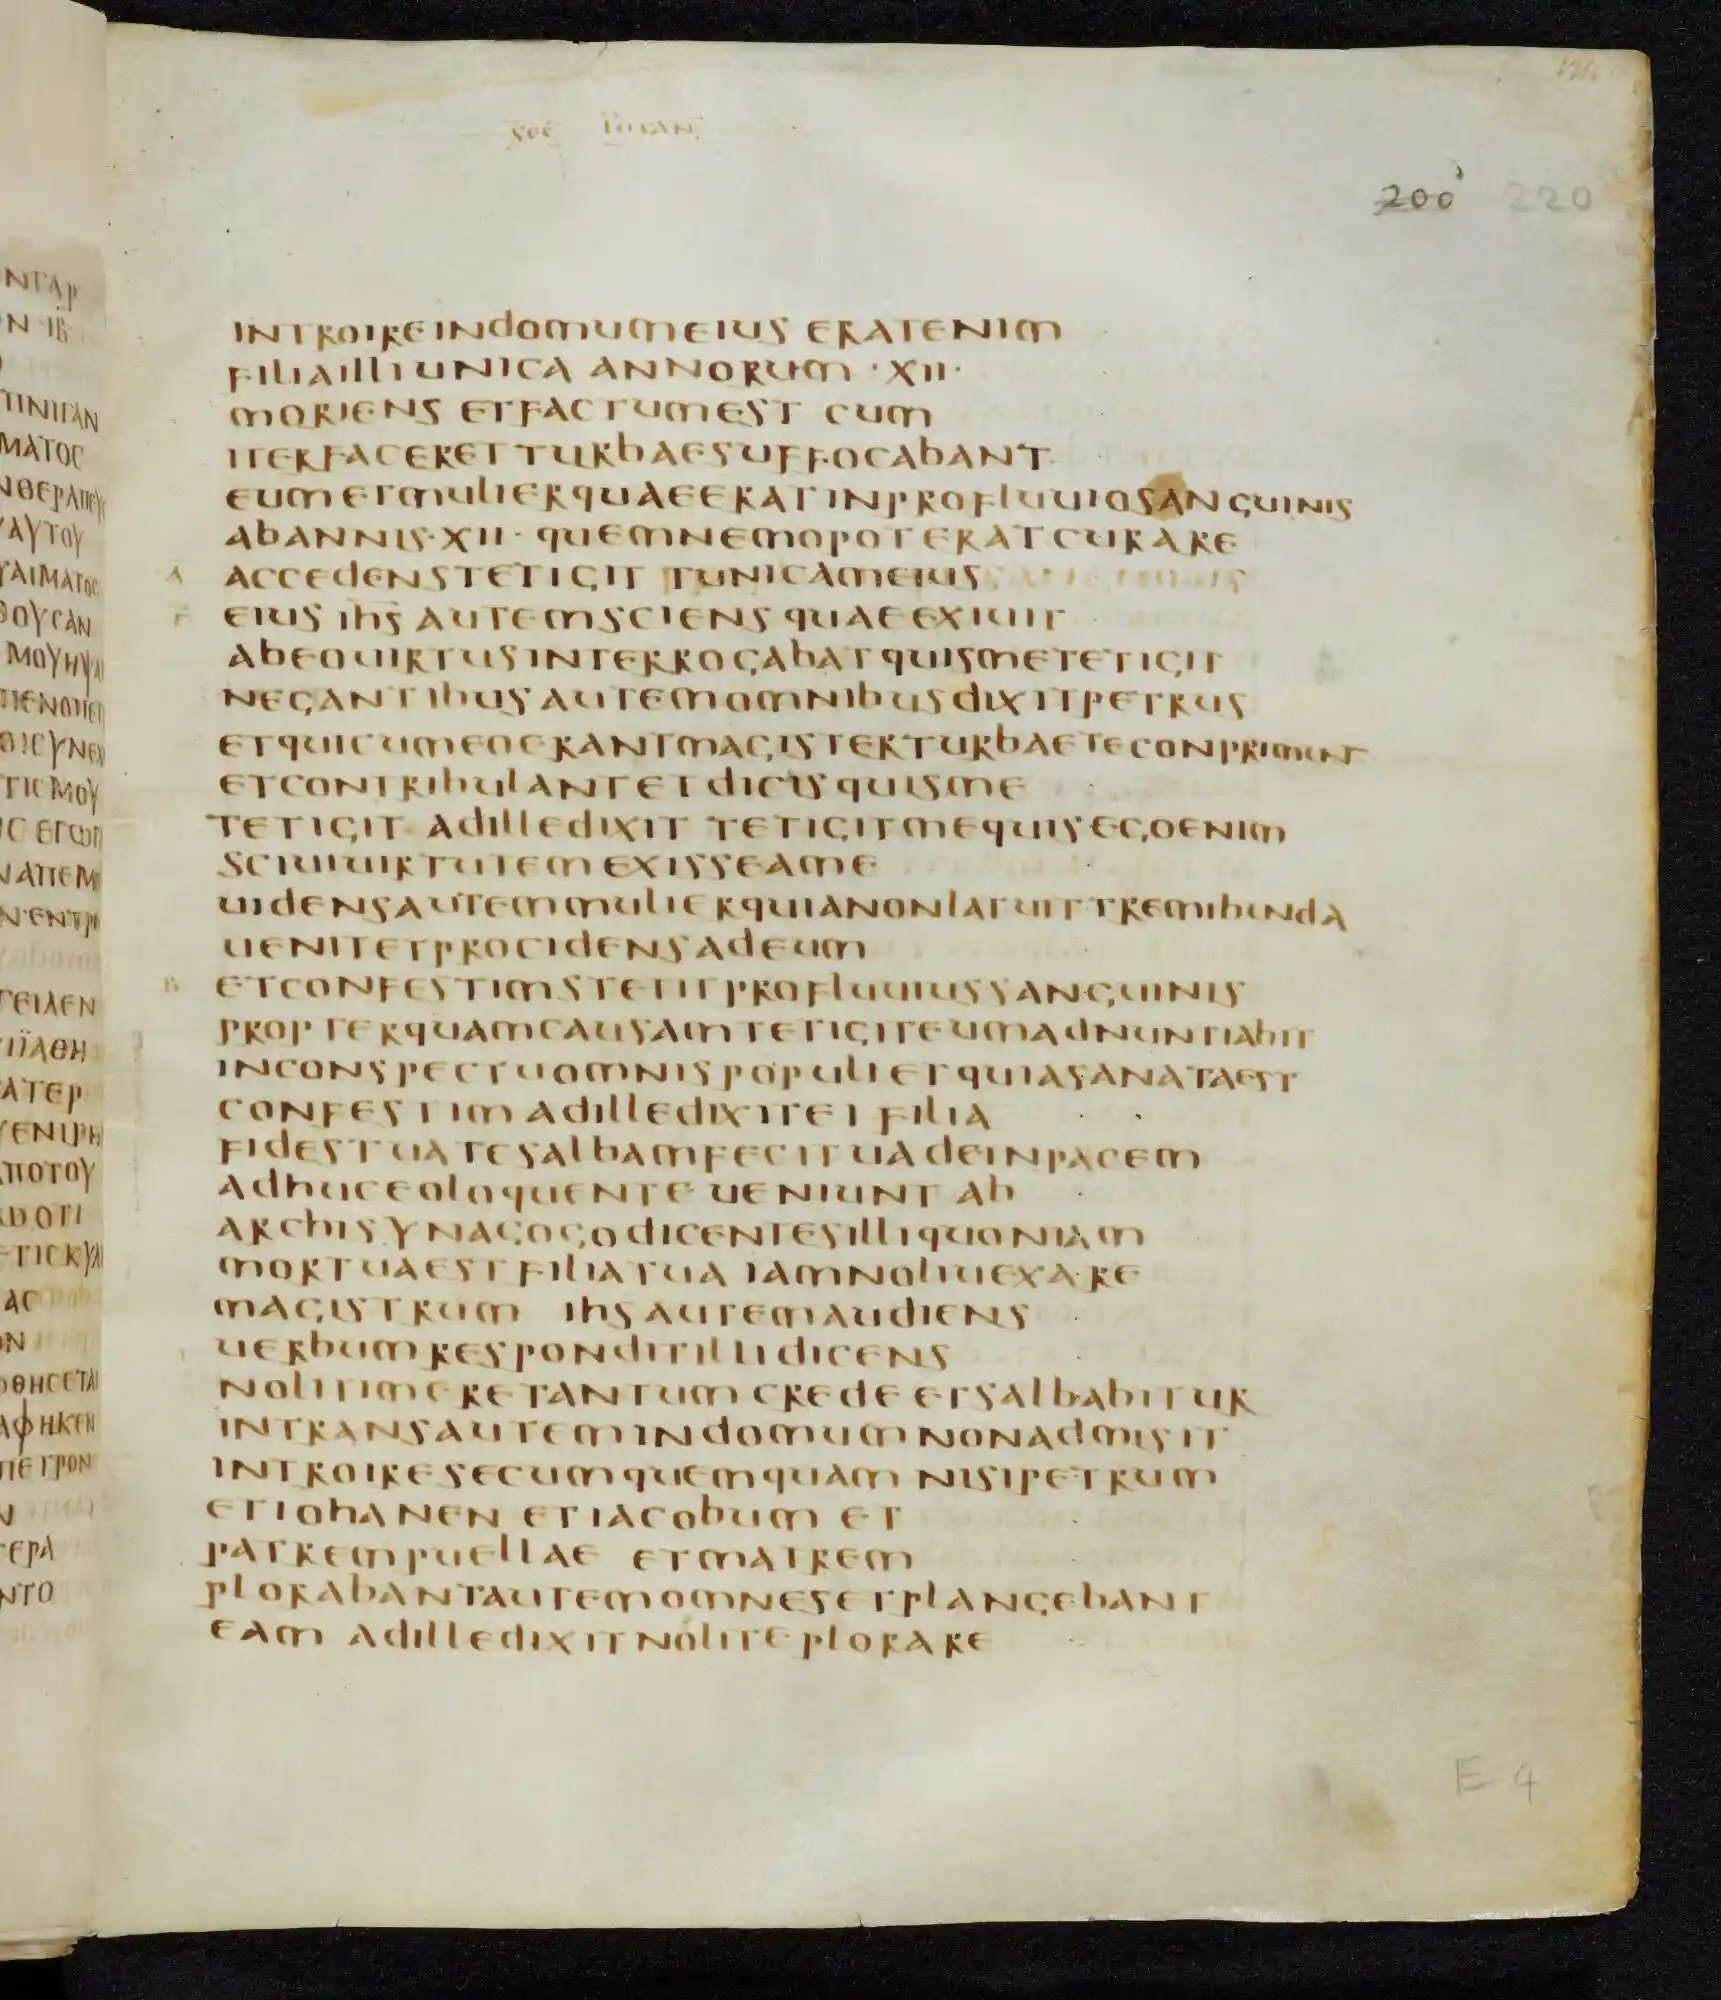 200 220
INTROIREINDOMUMEIUS ERATENIM
FILIAILLIUNICA ANNORUM ·XII·
MORIENS ETFACTUMEST CUM
ITERFACERET TURBAESUFFOCABANT
EUMETMULIERQUAEERATINPROFLUUIOSANGUINIS
ABANNIS·XII· QUEMNEMOPOTERATCURARE
ACCEDENSTETIGIT TUNICAMEIUS
EIUS IHS AUTEMSCIENS QUAEEXIUIT
ABEOUIRTUSINTERROGABATQUISMETETIGIT
NEGANTIBUSAUTEMOMNIBUSDIXITPETRUS
ETQUICUMEOERANTMAGISTERTURBAETECONPRIMUNT
ETCONTRIBULANTETDICISQUISME
TETIGIT ADILLEDIXIT TETIGITMEQUISEGOENIM
SCIUIUIRTUTEMEXISSEAME
UIDENSAUTEMMULIERQUIANONLATUITTREMIBUNDA
UENITETPROCIDENSADEUM
ETCONFESTIMSTETITPROFLUUIUSSANGUINIS
PROPTERQUAMCAUSAMTETIGITEUMADNUNTIABIT
INCONSPECTUOMNISPOPULIETQUIASANATAEST
CONFESTIM ADILLEDIXITEI FILIA
FIDESTUATESALBAMFECITUADEINPACEM
ADHUCEOLOQUENTE UENIUNT AB
ARCHISYNAGOGODICENTESILLIQUONIAM
MORTUAESTFILIATUA IAMNOLIUEXARE
MAGISTRUM IHSAUTEMAUDIENS
UERBUMRESPONDITILLIDICENS
NOLITIMERETANTUM CREDE ETSALBABITUR
INTRANSAUTEMINDOMUMNONADMISIT
INTROIRESECUMQUEMQUAM NISIPETRUM
ETIOHANEN ETIACOBUM ET
PATREMPUELLAE ETMATREM
PLORABANTAUTEMOMNESETPLANGEBANT
EAM ADILLEDIXITNOLITEPLORARE
E 4